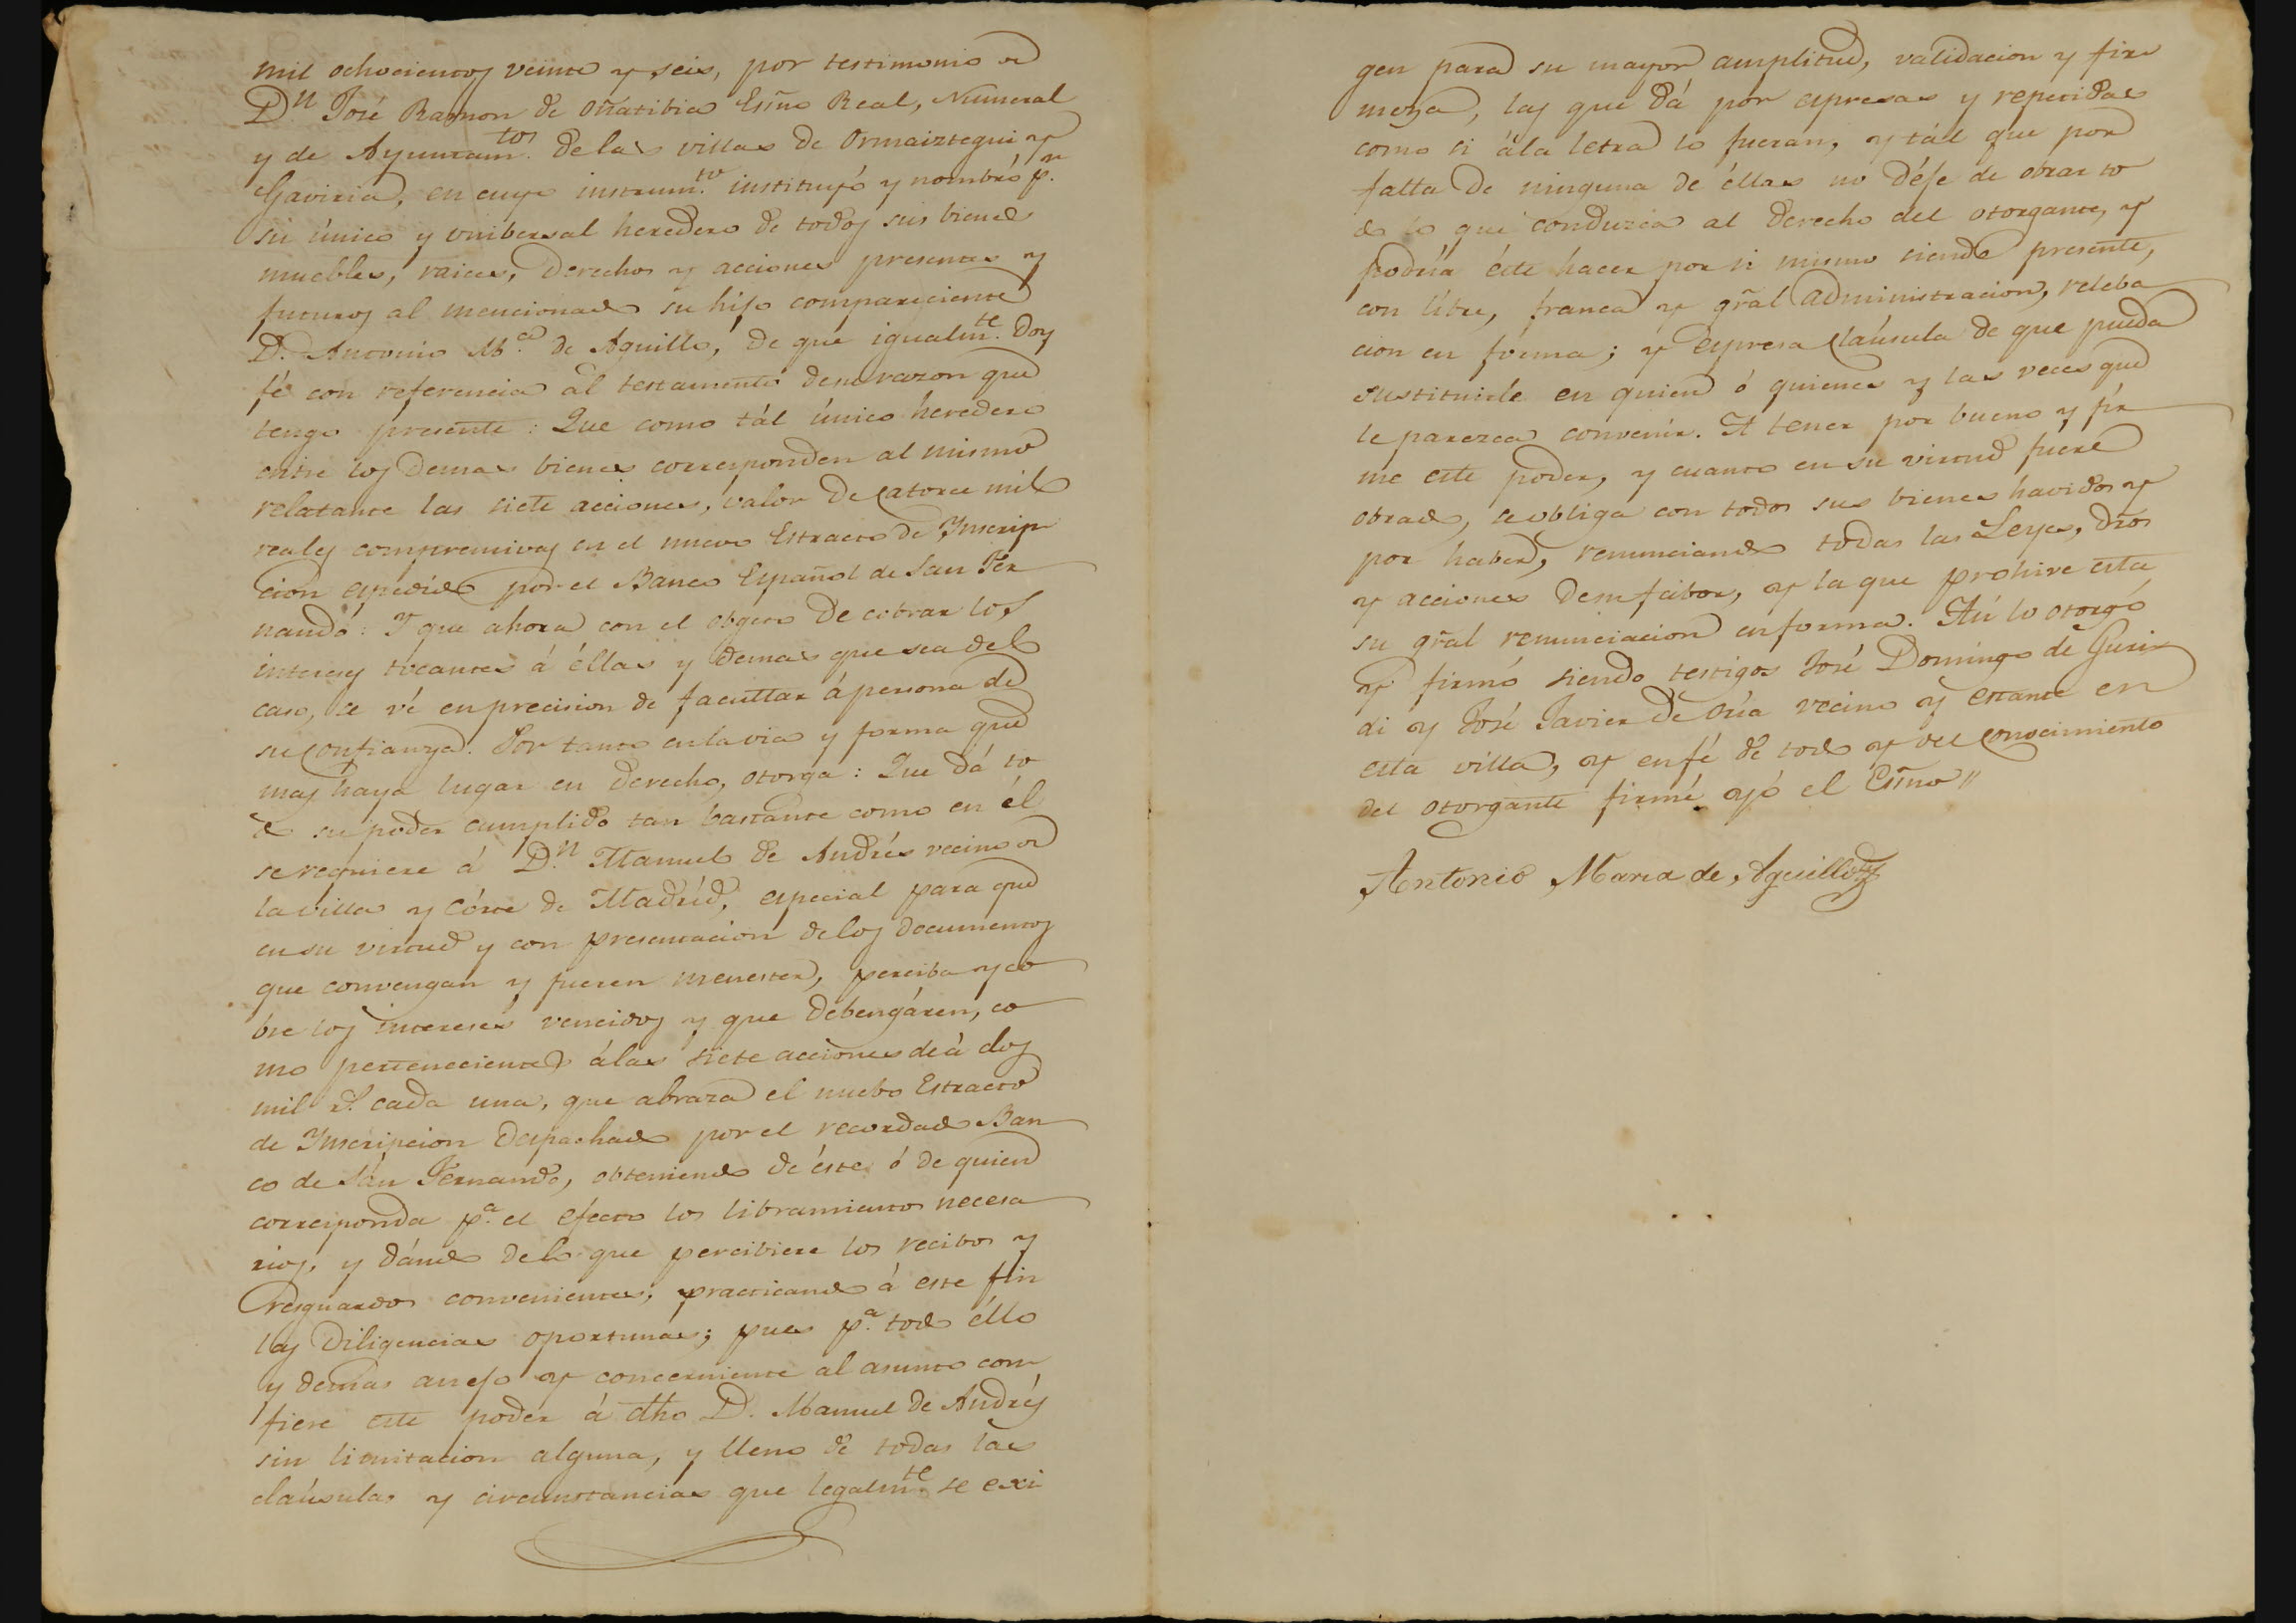 mil ochocientos veinte y seis, por testimonio de
Dn José Ramon de Oñatibia Esñno Real, Numeral
y de Ayuntamtos de las villas de Ormaiztegui y
Gaviria, en cuyo instrumto instituyó y nombró pr
su único y unibersal heredero de todos sus bienes
muebles, raices, derechos y acciones presentes y
futuros al mencionado su hijo compareciente
D. Antonio Ma de Aguillo, de que igualmte doy
fé con referencia al testamento de su razon que
tengo presente: Que como tál único heredero
entre los demas bienes corresponden al mismo
relatante las siete acciones, valor de catorce mil
reales comprensivas en el nuevo Estracto de Ynscrip
cion espedido por el Banco Español de San Fer
nando: Y que ahora con el obgeto de cobrar los
intereses tocantes á éllas y demas que sea del
caso, se vé en precision de facultar á persona de
su confianza. Por tanto en la via y forma que
mas haya lugar en derecho, otorga: Que dá to
do su poder cumplido tan bastante como en él
se requiere á Dn Manuel de Andrés vecino de
la villa y Córte de Madrid, especial para que
en su virtud y con presentacion de los documentos
que convengan y fueren menester, perciba y co
bre los intereses vencidos y que debengáren, co
mo pertenecientes á las siete acciones de á dos
mil rs. cada una, que abraza el nuebo Estracto
de Ynscripcion despachado por el recordado Ban
co de San Fernando, obteniendo de éste ó de quien
corresponda pa el efecto los libramientos necesa
rios, y dándo de lo que percibiere los recibos y
resguardos convenientes; practicando á este fin
las diligencias oportunas; pues pa todo éllo
y demas anejo y concerniente al asunto con
fiere este poder á dho D. Manuel de Andrés
sin limitacion alguna, y lleno de todas las
claúsulas y circunstancias que legalmte se exi
gen para su mayor amplitud, validacion y fir
meza, las que dá por espresas y repetidas
como si á la letra lo fueran, y tál que por
falta de ninguna de éllas no déje de obrar to
do lo que conduzca al derecho del otorgante, y
podria éste hacer por si mismo siendo presente,
con libre, franca y gral administracion, releba
cion en forma; y espresa claúsula de que pueda
sustituirle en quien ó quienes y las veces que
le parezca convenir. A tener por bueno y fir
me este poder, y cuanto en su virtud fuere
obrado, se obliga con todos sus bienes havidos y
por haber, renunciando todas las Leyes, dros
y acciones de su fabor, y la que prohive esta
su gral renunciacion en forma. Asi lo otorgó
y firmó siendo testigos José Domingo de Guri
di y José Javier de Oria vecino y estante en
esta villa, y en fé de todo y del conocimiento
del otorgante firmé yó el Esñno //
Antonio Maria de Aguillo